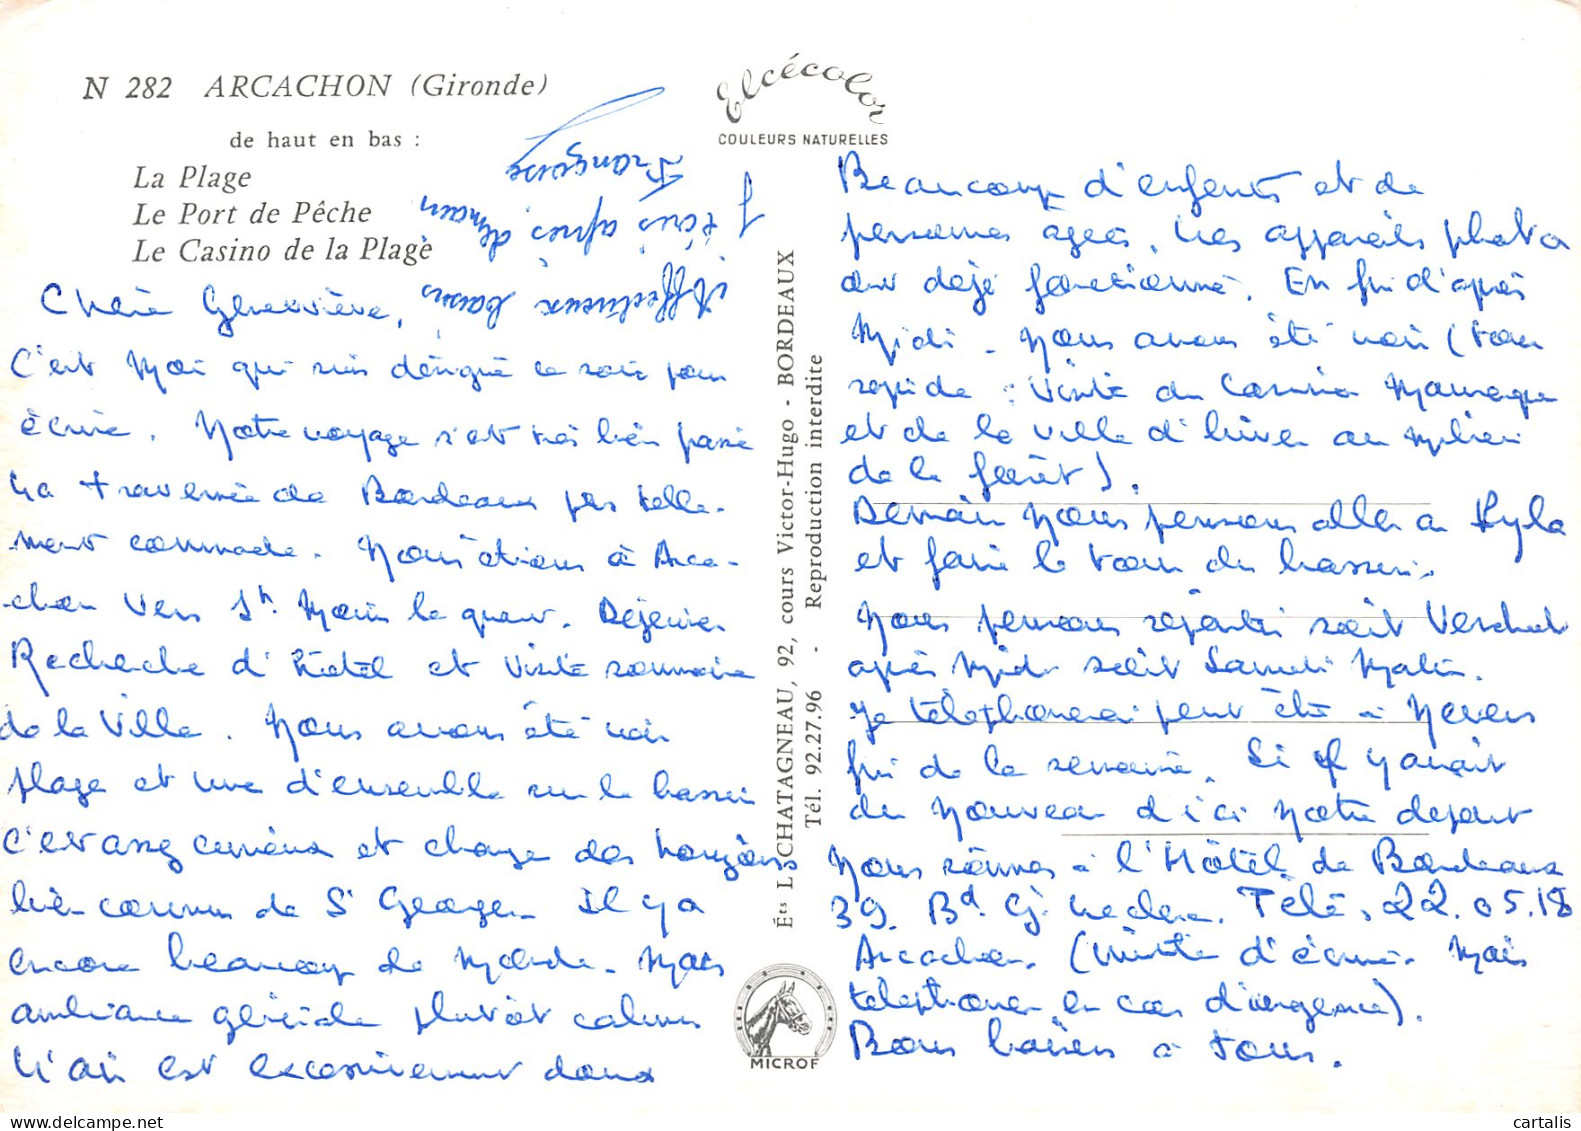 N 282 ARCACHON (Gironde)
de haut en bas :
La Plage
Le Port de Pêche
Le Casino de la Plage
Elcécolor
COULEURS NATURELLES
Chère Geneviève,
C'est moi qui suis désigné ce soir pour
écrire. Notre voyage s'est très bien passé
La traversée de Bordeaux pas telle-
ment commode. Nous étions à Arca-
chon vers 1h moins le quart. Déjeuner
Recherche d'Hôtel et visite sommaire
de la Ville. Nous avons été voir
plage et vue d'ensemble sur le bassin
C'est assez curieux et change des horizons
bien connus de St Georges. Il y a
encore beaucoup de monde. Mais
ambiance générale plutôt calme
L'air est excessivement doux
Beaucoup d'enfants et de
personnes âgées. Les appareils photo
ont déjà fonctionné. En fin d'après
Midi. Nous avons été voir (tour
rapide : Visite du Casino Mauresque
et de la ville d'hiver au milieu
de la forêt).
Demain nous pensons aller à Pyla
et faire le tour du bassin.
Nous pensons repartir soit Vendredi
après midi soit Samedi Matin.
Je téléphonerai peut être à Nevers
fin de la semaine. Si il y avait
du nouveau d'ici notre depart
Nous sommes à l'Hôtel de Bordeaux
39. Bd. Gl. Leclerc. Télé. 22.05.18
Arcachon. (Inutile d'écrire. Mais
telephoner en cas d'urgence).
Bons baisers à tous.
J'écris après demain
Affectueux baisers
Françoise
Éts L. CHATAGNEAU, 92, cours Victor-Hugo - BORDEAUX
Tél. 92.27.96 - Reproduction interdite
MICROF
cartalis